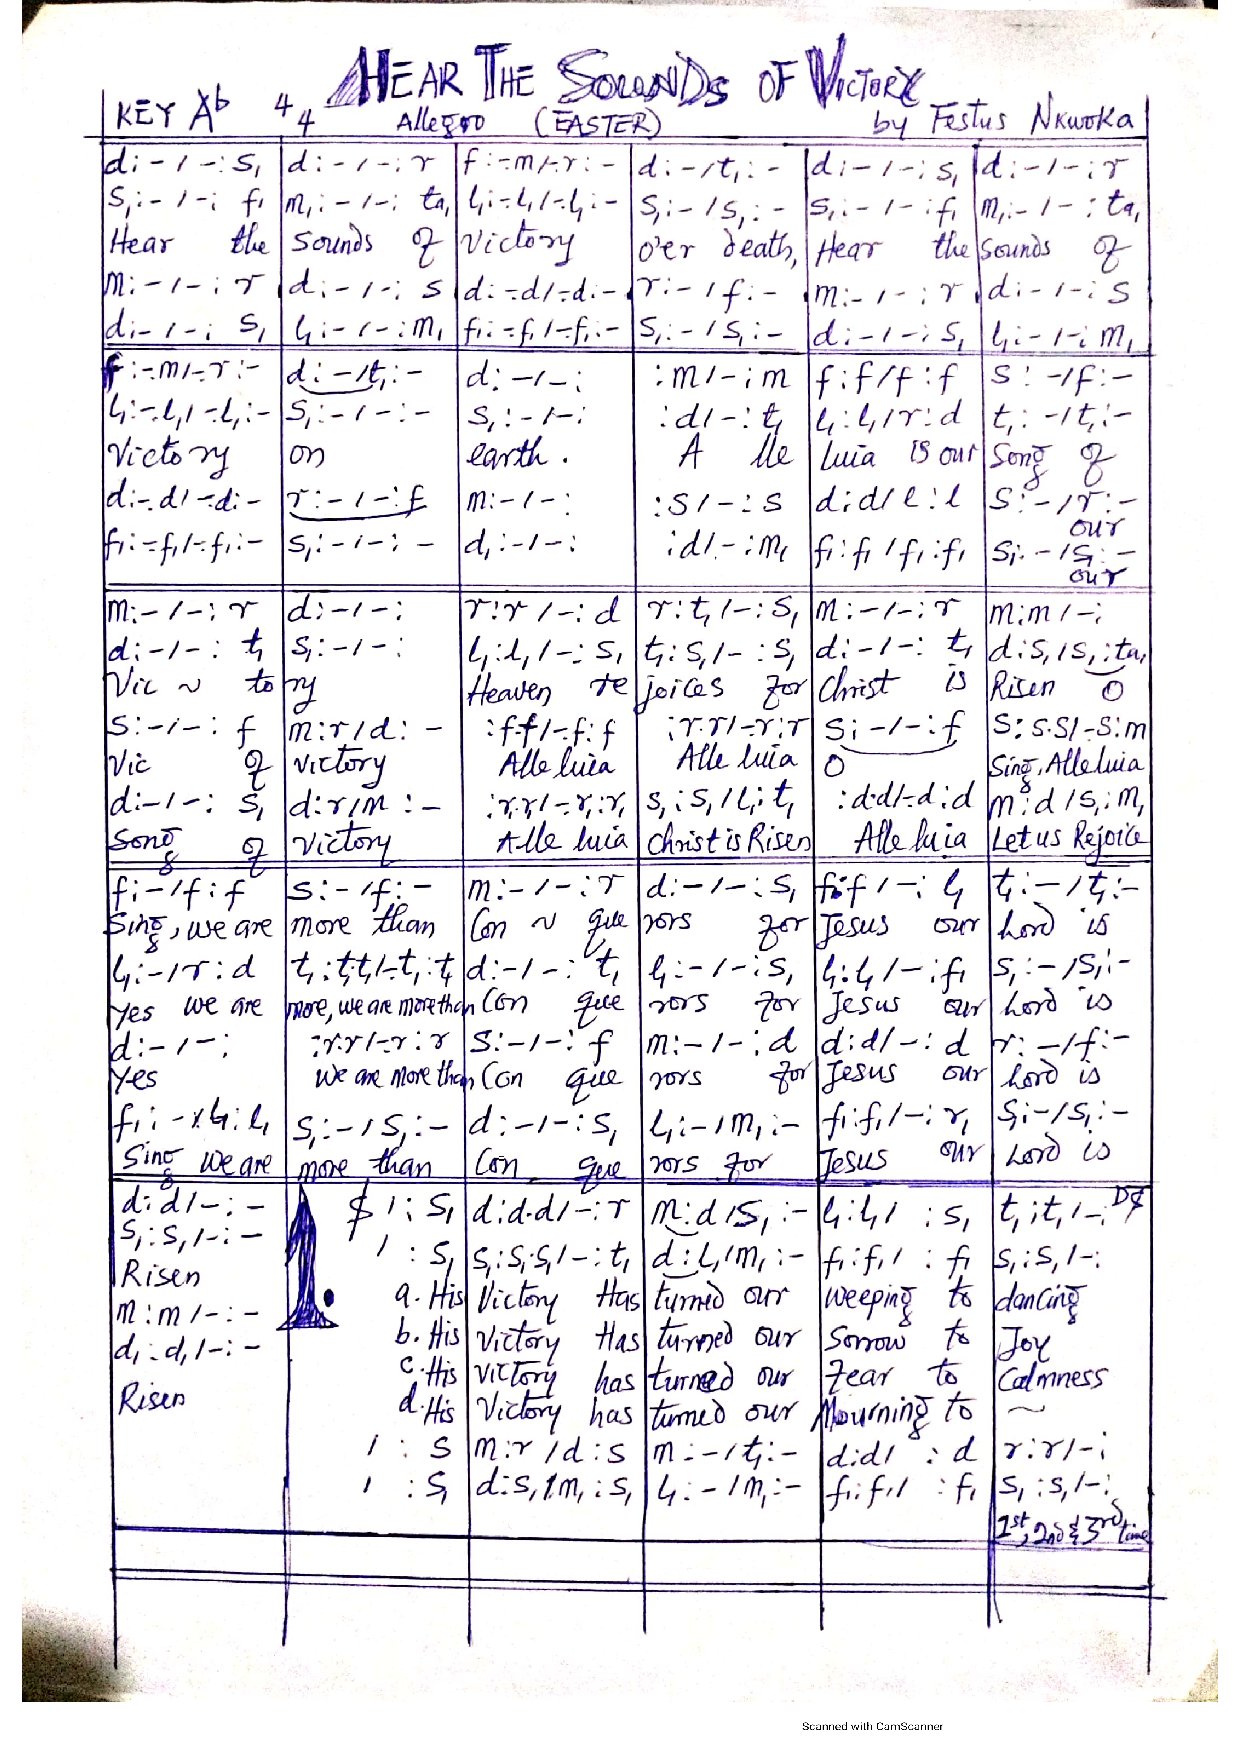 HEAR THE SOUNDS OF VICTORY
KEY Ab 4/4 Allegro (EASTER) by Festus Nkwoka
d:-/-:s₁ | d:-/-:r | f:-.m/-.r:- | d:-/t₁:- | d:-/-:s₁ | d:-/-:r
s₁:-/-:f₁ | m₁:-/-:ta₁ | l₁:-.l₁/-.l₁:- | s₁:-/s₁:- | s₁:-/-:f₁ | m₁:-/-:ta₁
Hear the | Sounds of | Victory | o'er death, | Hear the | Sounds of
m:-/-:r | d:-/-:s | d:-.d/-.d:- | r:-/f:- | m:-/-:r | d:-/-:s
d:-/-:s₁ | l₁:-/-:m₁ | f₁:-.f₁/-.f₁:- | s₁:-/s₁:- | d:-/-:s₁ | l₁:-/-:m₁
f:-.m/-.r:- | d:-/t₁:- | d:-/-: | :m/-:m | f:f/f:f | s:-/f:-
l₁:-.l₁/-.l₁:- | s₁:-/-:- | s₁:-/-: | :d/-:t₁ | l₁:l₁/r:d | t₁:-/t₁:-
Victory | on | earth. | A lle | luia is our | Song of
d:-.d/-.d:- | r:-/-:f | m:-/-: | :s/-:s | d:d/l:l | s:-/r:-
our
f₁:-.f₁/-.f₁:- | s₁:-/-:- | d₁:-/-: | :d/-:m₁ | f₁:f₁/f₁:f₁ | s₁:-/s₁:-
our
m:-/-:r | d:-/-: | r:r/-:d | r:t₁/-:s₁ | m:-/-:r | m:m/-:
d:-/-:t₁ | s₁:-/-: | l₁:l₁/-:s₁ | t₁:s₁/-:s₁ | d:-/-:t₁ | d:s₁/s₁:ta₁
Vic ~ to | ry | Heaven re | joices for | Christ is | Risen O
s:-/-:f | m:r/d:- | :f.f/-.f:f | :r.r/-.r:r | s:-/-:f | s:s.s/-.s:m
Vic of | Victory | Alleluia | Alleluia | O | Sing, Alleluia
d:-/-:s₁ | d:r/m:- | :r₁.r₁/-.r₁:r₁ | s₁:s₁/l₁:t₁ | :d.d/-.d:d | m:d/s₁:m₁
Song of | Victory | Alleluia | Christ is Risen | Alleluia | Let us Rejoice
f:-/f:f | s:-/f:- | m:-/-:r | d:-/-:s₁ | f:f/-:l₁ | t₁:-/t₁:-
Sing, we are | more than | Con ~ que | rors for | Jesus our | Lord is
l₁:-/r:d | t₁:t₁.t₁/-.t₁:t₁ | d:-/-:t₁ | l₁:-/-:s₁ | l₁:l₁/-:f₁ | s₁:-/s₁:-
Yes we are | more, we are more than | Con que | rors for | Jesus our | Lord is
d:-/-: | :r.r/-.r:r | s:-/-:f | m:-/-:d | d:d/-:d | r:-/f:-
Yes | We are more than | Con que | rors for | Jesus our | Lord is
f₁:-/l₁:l₁ | s₁:-/s₁:- | d:-/-:s₁ | l₁:-/m₁:- | f₁:f₁/-:r₁ | s₁:-/s₁:-
Sing we are | more than | Con que | rors for | Jesus our | Lord is
d:d/-:- | $ /:s₁ | d:d.d/-:r | m:d/s₁:- | l₁:l₁/ :s₁ | t₁:t₁/-: D$
s₁:s₁/-:- | / :s₁ | s₁:s₁.s₁/-:t₁ | d:l₁/m₁:- | f₁:f₁/ :f₁ | s₁:s₁/-:
Risen | a. His | Victory Has | turned our | weeping to | dancing
m:m/-:- | b. His | Victory Has | turned our | Sorrow to | Joy
d₁:d₁/-:- | c. His | Victory has | turned our | Fear to | Calmness
Risen | d. His | Victory has | turned our | Mourning to | ~
/ :s | m:r/d:s | m:-/t₁:- | d:d/ :d | r:r/-:
/ :s₁ | d:s₁/m₁:s₁ | l₁:-/m₁:- | f₁:f₁/ :f₁ | s₁:s₁/-:
1st, 2nd & 3rd time
Scanned with CamScanner